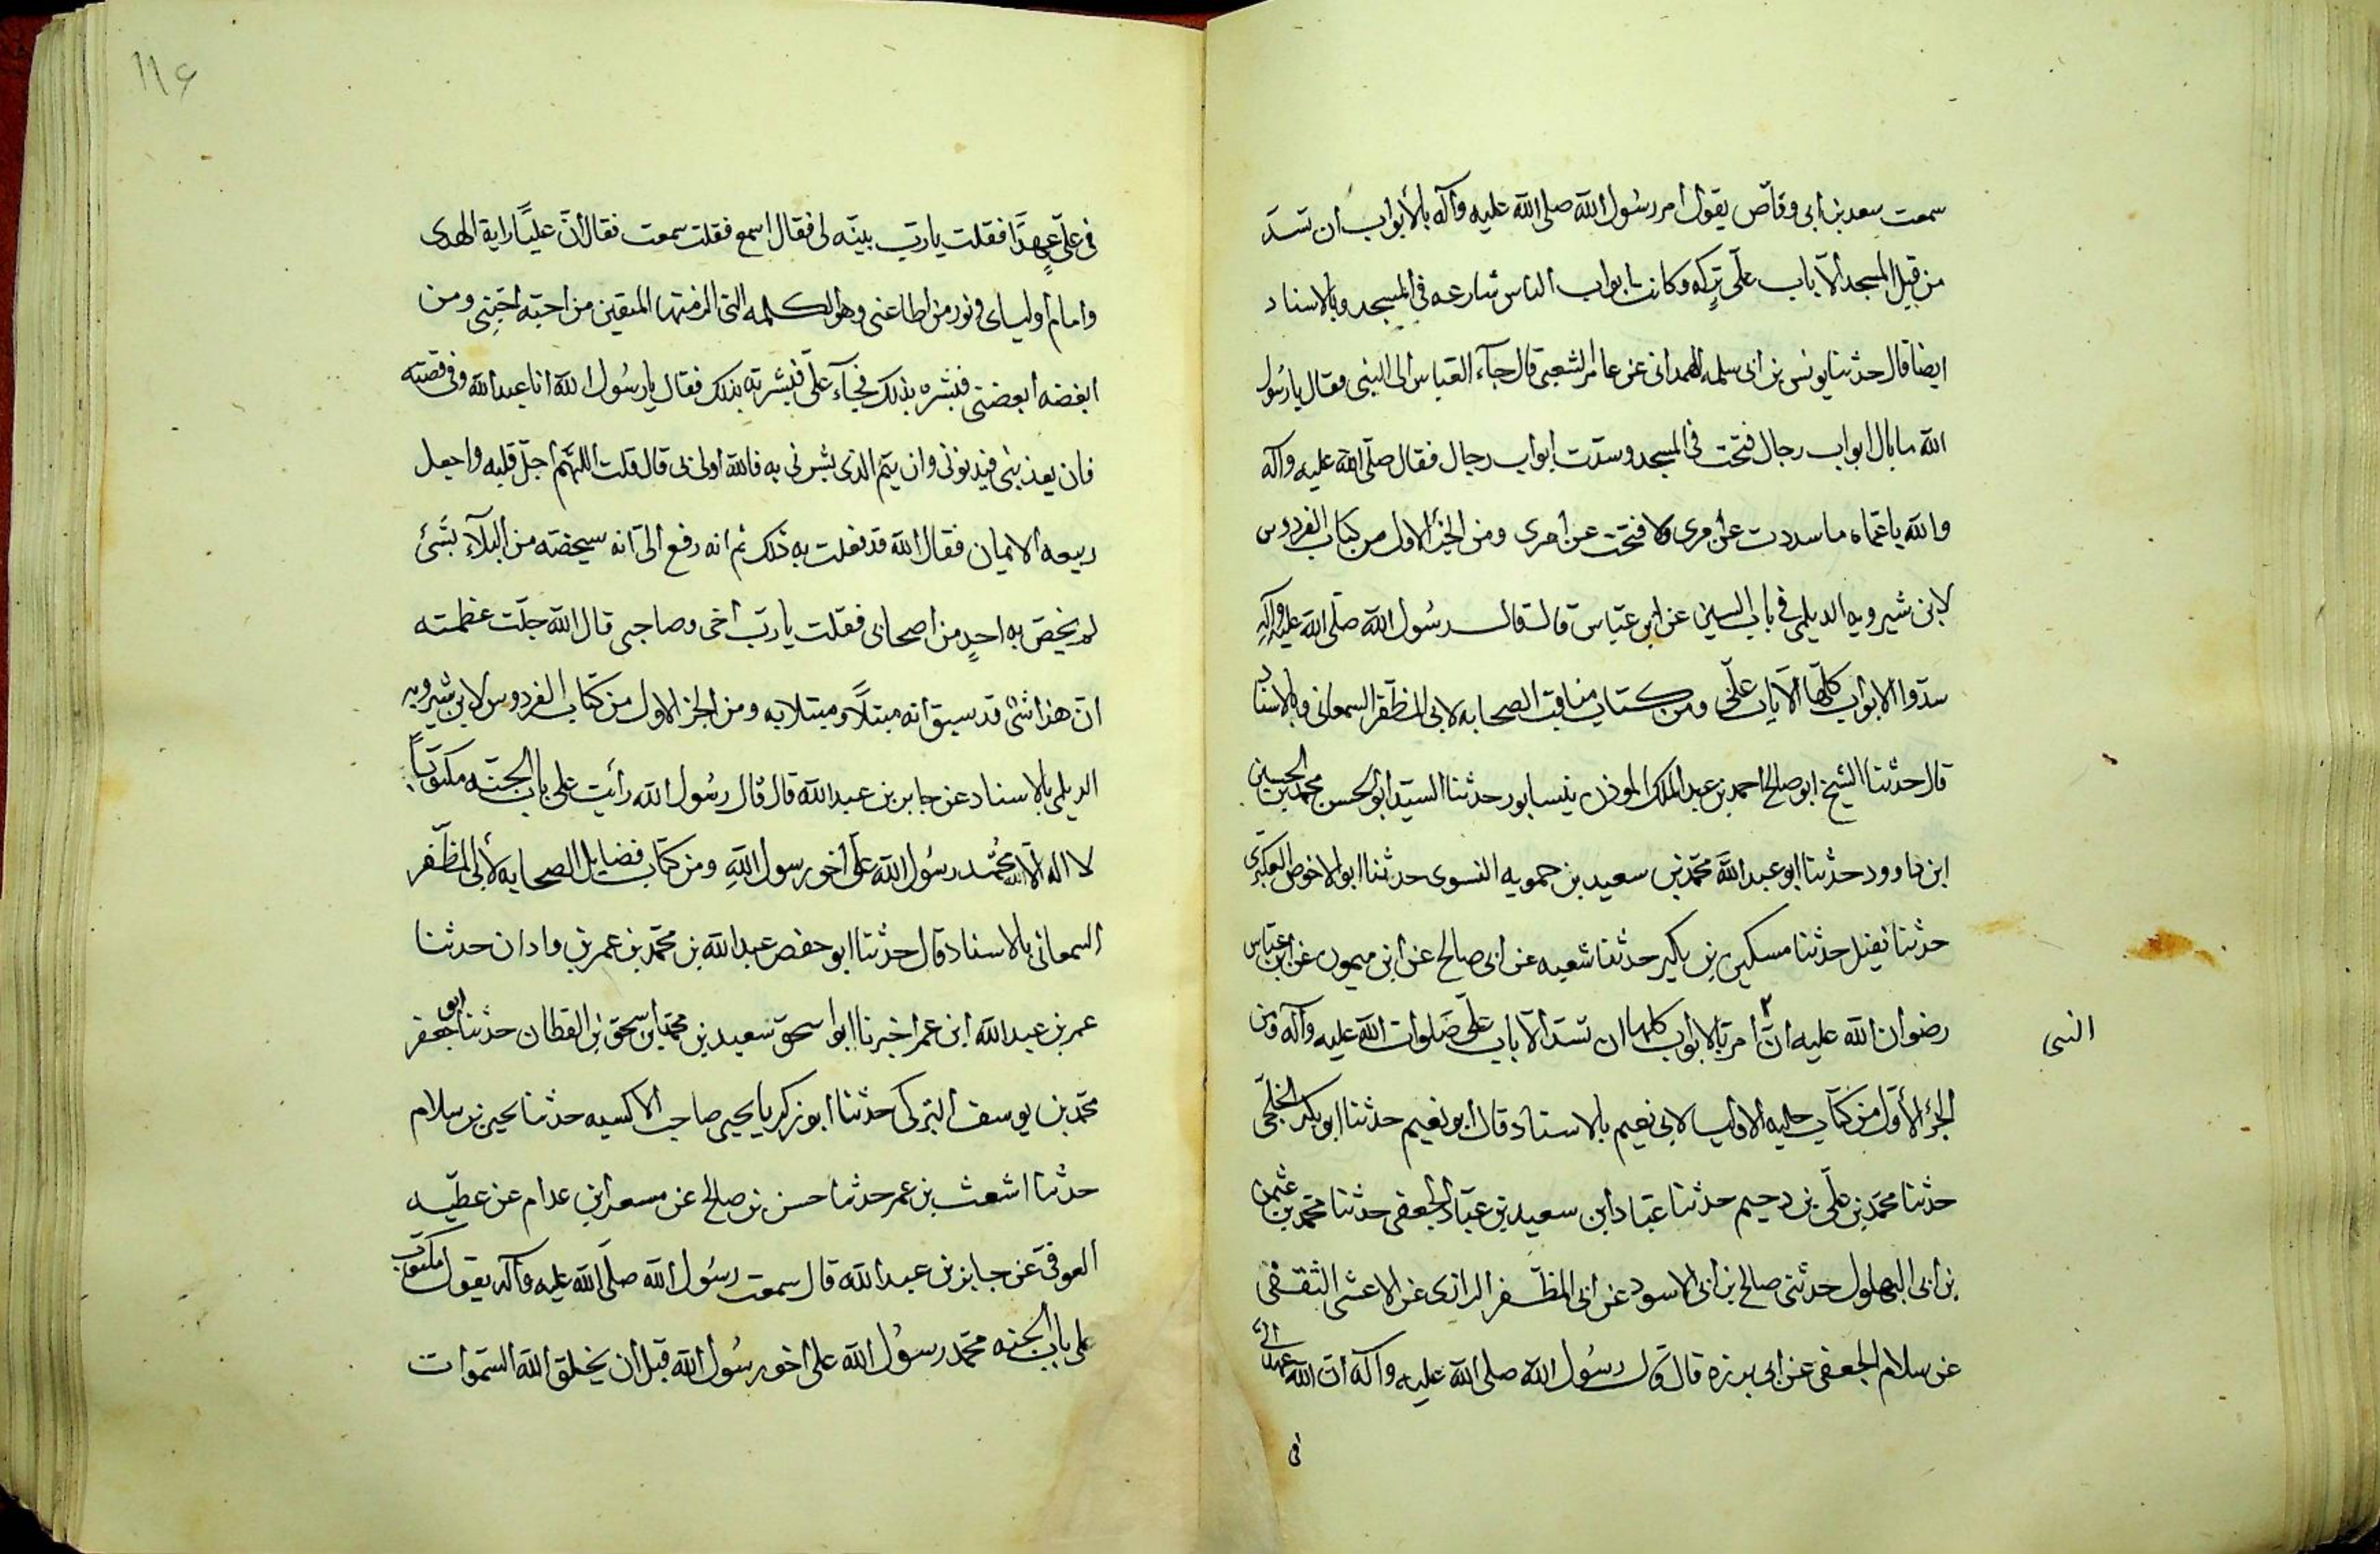 سمعت سعد بن ابى وقاص يقول امر رسول الله صلى الله عليه وآله بالأبواب ان تسدّ
من قبل المسجد الا باب على تركه وكانت ابواب الناس شارعه فى المسجد وبالاسناد
ايضا قال حدثنا يونس بن ابى سلمه الهمدانى عن عامر الشعبى قال جآء العباس الى النبى فقال يا رسول
الله ما بال ابواب رجال فتحت فى المسجد وسدّت ابواب رجال فقال صلى الله عليه وآله
والله يا عمّاه ما سددت عن امرى ولا فتحت عن امرى ومن الجزء الاول من كتاب الفردوس
لابن شيرويه الديلمى فى باب السين عن ابن عبّاس قال قال رسول الله صلّى الله عليه وآله
سدّوا الابواب كلّها الا باب علّى ومن كتاب مناقب الصحابه لابى المظفّر السمعانى وبالاسناد
قال حدثنا الشيخ ابو صالح احمد بن عبد الملك الموذن بنيسابور حدثنا السيّد ابو الحسن محمد بن الحسين
ابن داوود حدثنا ابو عبد الله محمّد بن سعيد بن حمويه النسوى حدثنا ابو الاخوص العكبرى
حدثنا نفيل حدثنا مسكين بن بكير حدثنا شعبه عن ابى صالح عن ابن ميمون عن ابن عبّاس
رضوان الله عليه انّ امر بالابواب كلها ان تسدّ الا باب علّى صلوات الله عليه وآله ومن
النبى
الجزء الأوّل من كتاب حليه الاولياء لابى نعيم بالاسناد قال ابو نعيم حدثنا ابو بكر الخلّجى
حدثنا محمّد بن علّى بن دحيم حدثنا عبّاد ابن سعيد بن عبّاد الجعفى حدثنا محمّد بن عثمن
بن ابى البهلول حدثنى صالح بن ابى الاسود عن ابى المظفر الرازى عن الاعشى الثقفى
عن سلام الجعفى عن ابى برزه قال قال رسول الله صلى الله عليه وآله ان الله عهد الىّ
فى
١١٦
فى علّى عهدًا فقلت يا ربّ بيّنه لى فقال اسمع فقلت سمعت فقال انّ عليًّا راية الهدى
وامام اوليائى ونور من اطاعنى وهو الكلمه التى الزمتها المتقين من احبّه احبّنى ومن
ابغضه ابغضنى فبشّره بذلك فجآء علّى فبشّرته بذلك فقال يا رسول الله انا عبد الله وفى قبضته
فان يعذبنى فبذنوبى وان يتمّ الذى بشّرنى به فالله اولى بى قال قلت اللهّم اجلّ قلبه واجعل
ربيعه الايمان فقال الله قد فعلت به ذلك ثم انه رفع الىّ انه سيخصّه من البلآء بشئ
لم يخصّ به احدٍ من اصحابى فقلت يا ربّ اخى وصاحبى قال الله جلّت عظمته
انّ هذا شئ قد سبق انه مبتلًا ومبتلا به ومن الجزء الاول من كتاب الفردوس لابن شيرويه
الديلمى بالاسناد عن جابر بن عبد الله قال قال رسول الله رأيت على باب الجنّه مكتوبًا
لا اله الا الله محمّد رسول الله على اخو رسول الله ومن كتاب فضايل الصحابه لأبى المظّفر
السمعانى بالاسناد قال حدثنا ابو حفص عبد الله بن محمّد بن عمر بن وادان حدثنا
عمر بن عبد الله ابن عمر اخبرنا ابو اسحق سعيد بن محمّد بن اسحق بن القطان حدثنا ابو جعفر
محمّد بن يوسف التركى حدثنا ابو زكريا يحيى صاحب الاكسيه حدثنا يحيى بن سلام
حدثنا اشعث بن عمر حدثنا حسن بن صالح عن مسعر ابن عدام عن عطيّه
العوفىّ عن جابر بن عبد الله قال سمعت رسول الله صلّى الله عليه وآله يقول مكتوب
على باب الجنه محمّد رسول الله على اخو رسول الله قبل ان يخلق الله السّموات